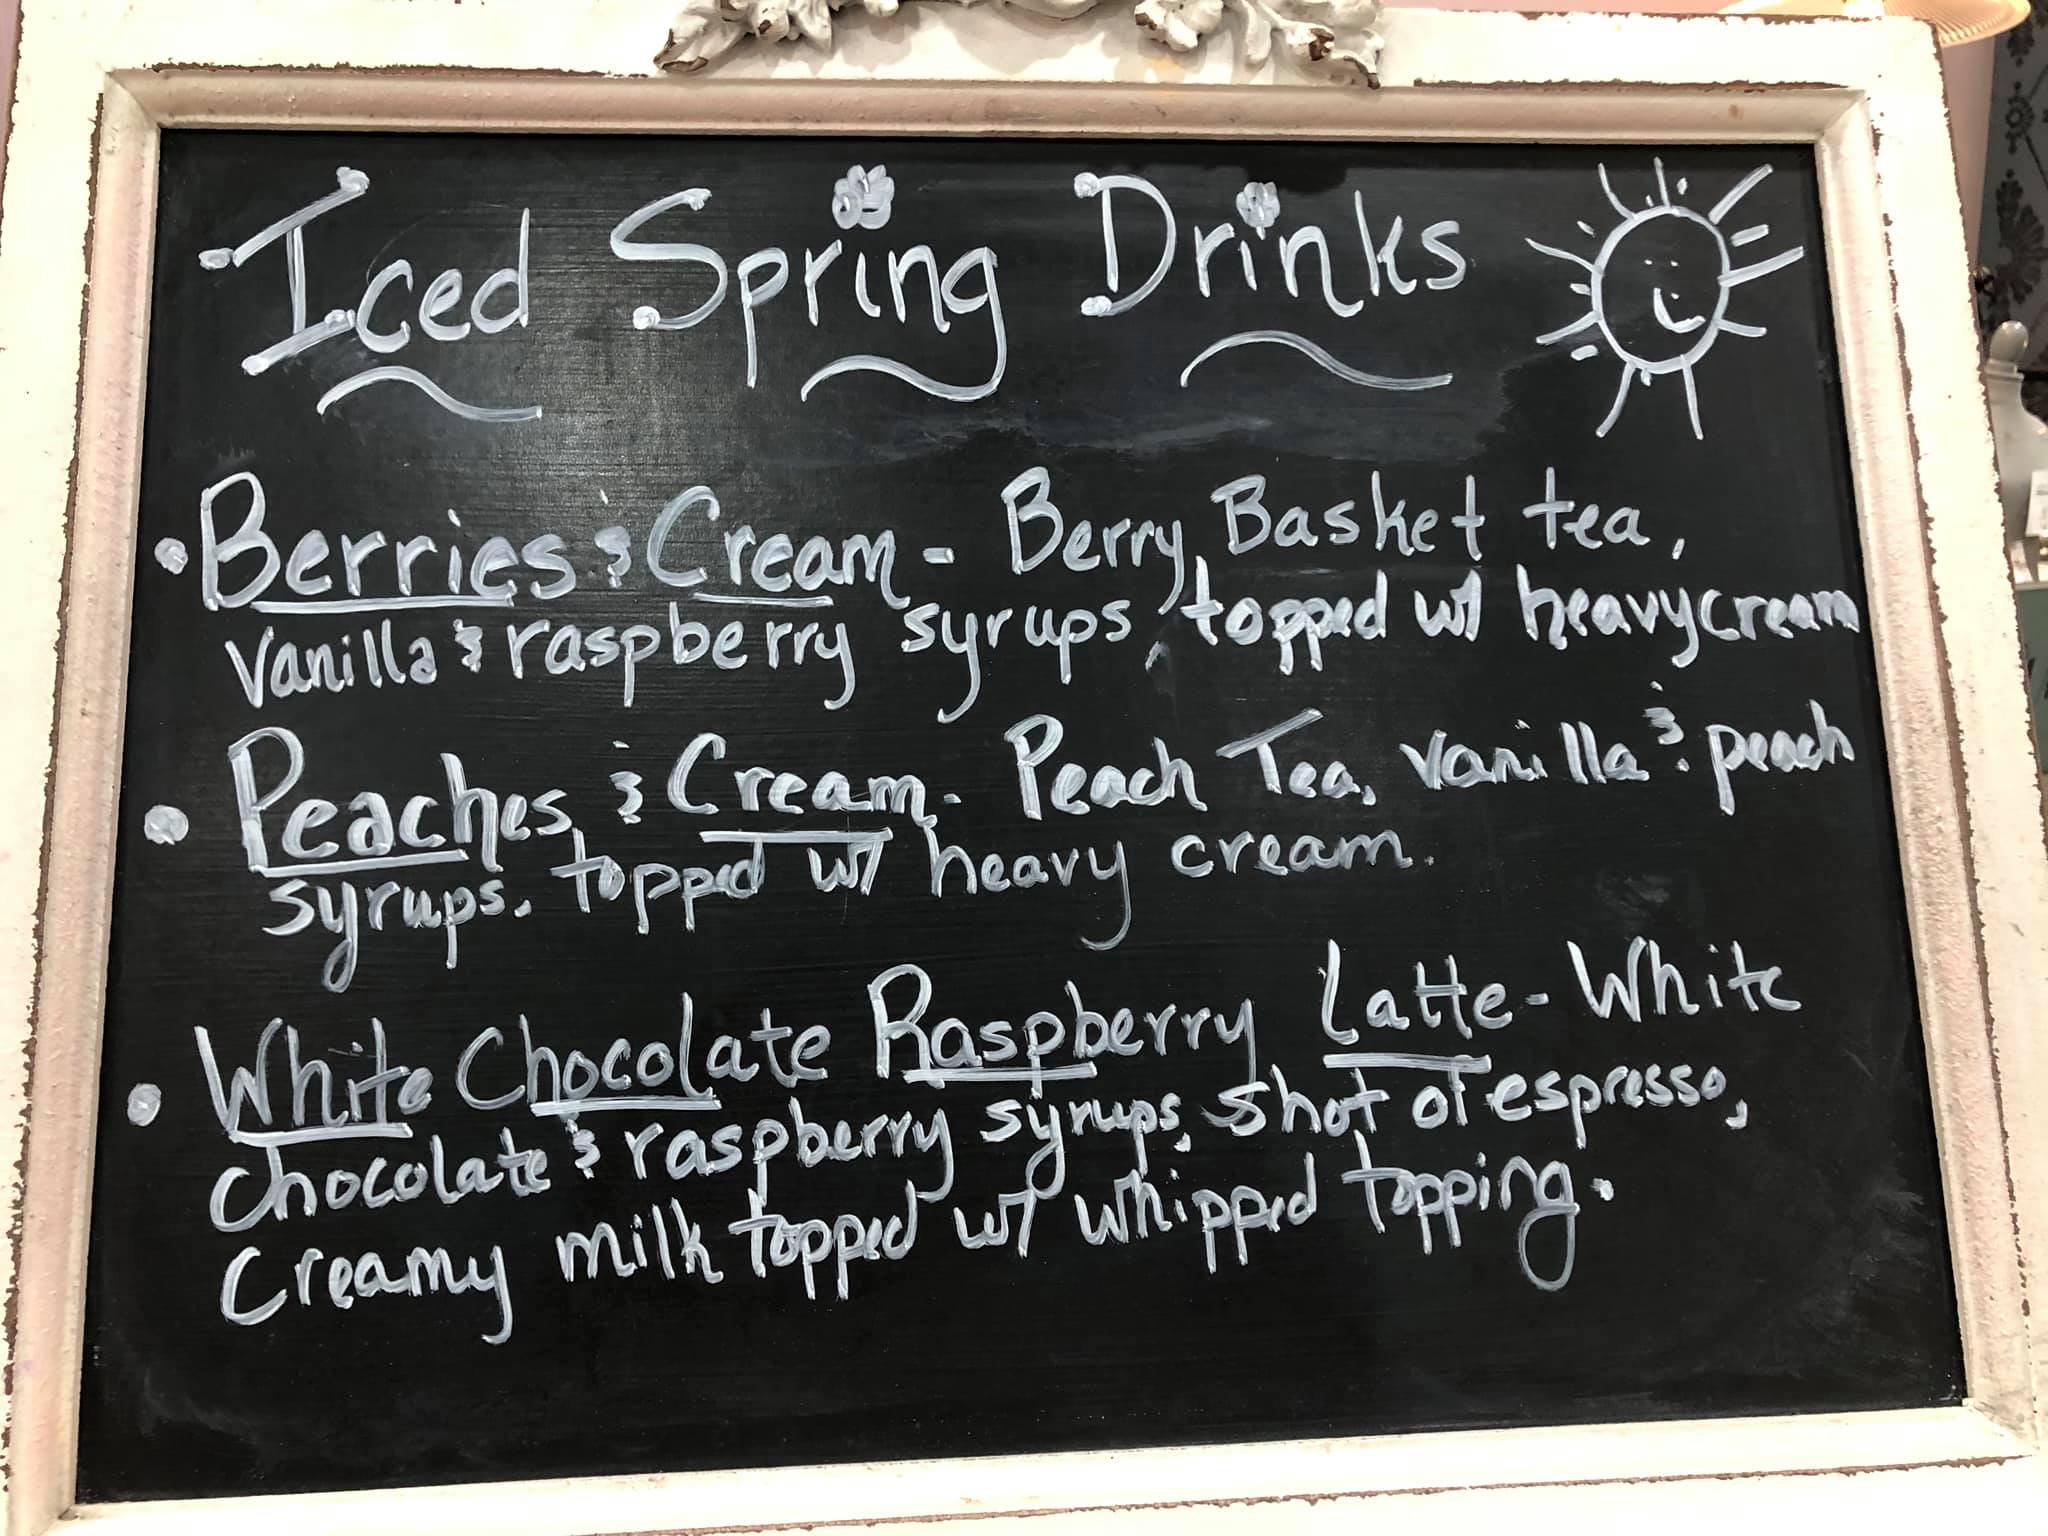 Iced Spring Drinks
• Berries & Cream - Berry Basket tea,
vanilla & raspberry syrups, topped w/ heavy cream
• Peaches & Cream - Peach Tea, vanilla & peach
syrups, topped w/ heavy cream.
• White Chocolate Raspberry Latte - White
chocolate & raspberry syrups, shot of espresso,
Creamy milk topped w/ whipped topping.